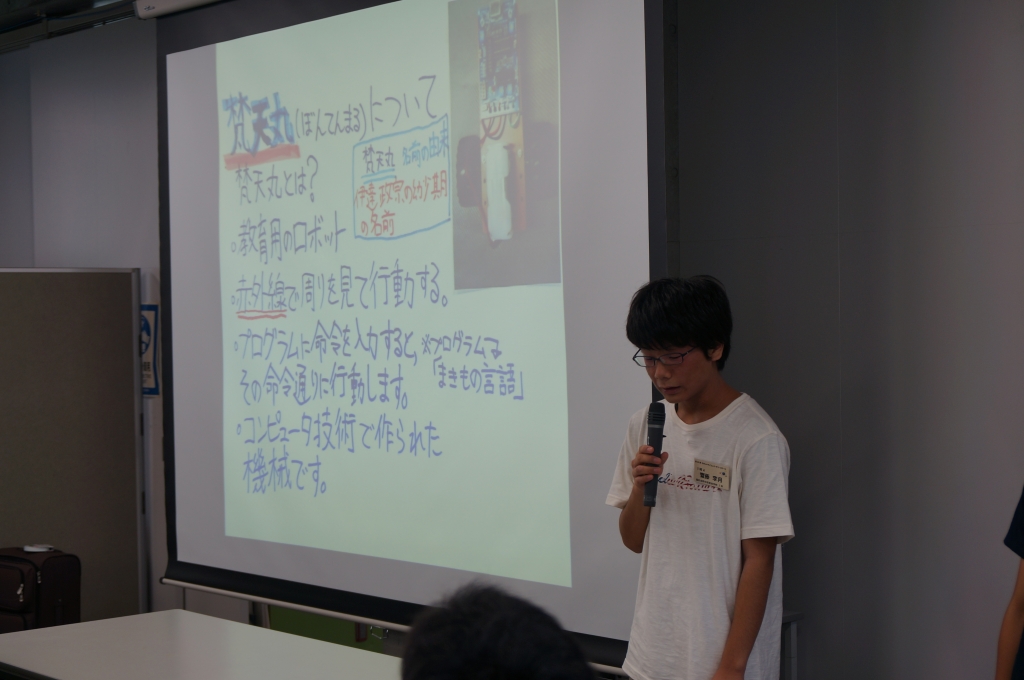 梵天丸(ぼんてんまる)について
梵天丸とは?
梵天丸 名前の由来
伊達政宗の幼少期
の名前
。教育用のロボット
。赤外線で周りを見て行動する。
・プログラムに命令を入力すると、※プログラムは
その命令通りに行動します。「まきもの言語」
・コンピュータ技術で作られた
機械です。